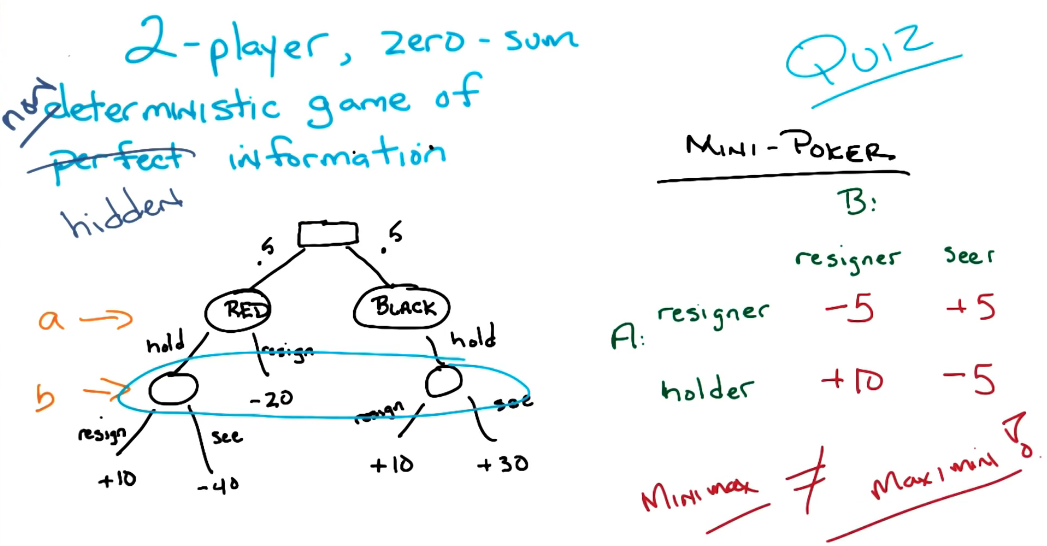 2-player, zero-sum
non
deterministic game of
perfect information
hidden
.5 .5
RED BLACK
a →
hold resign hold
b →
-20
resign see resign see
+10 -40 +10 +30
QUIZ
MINI-POKER
B:
resigner seer
A:
resigner -5 +5
holder +10 -5
Minimax ≠ Maximin!